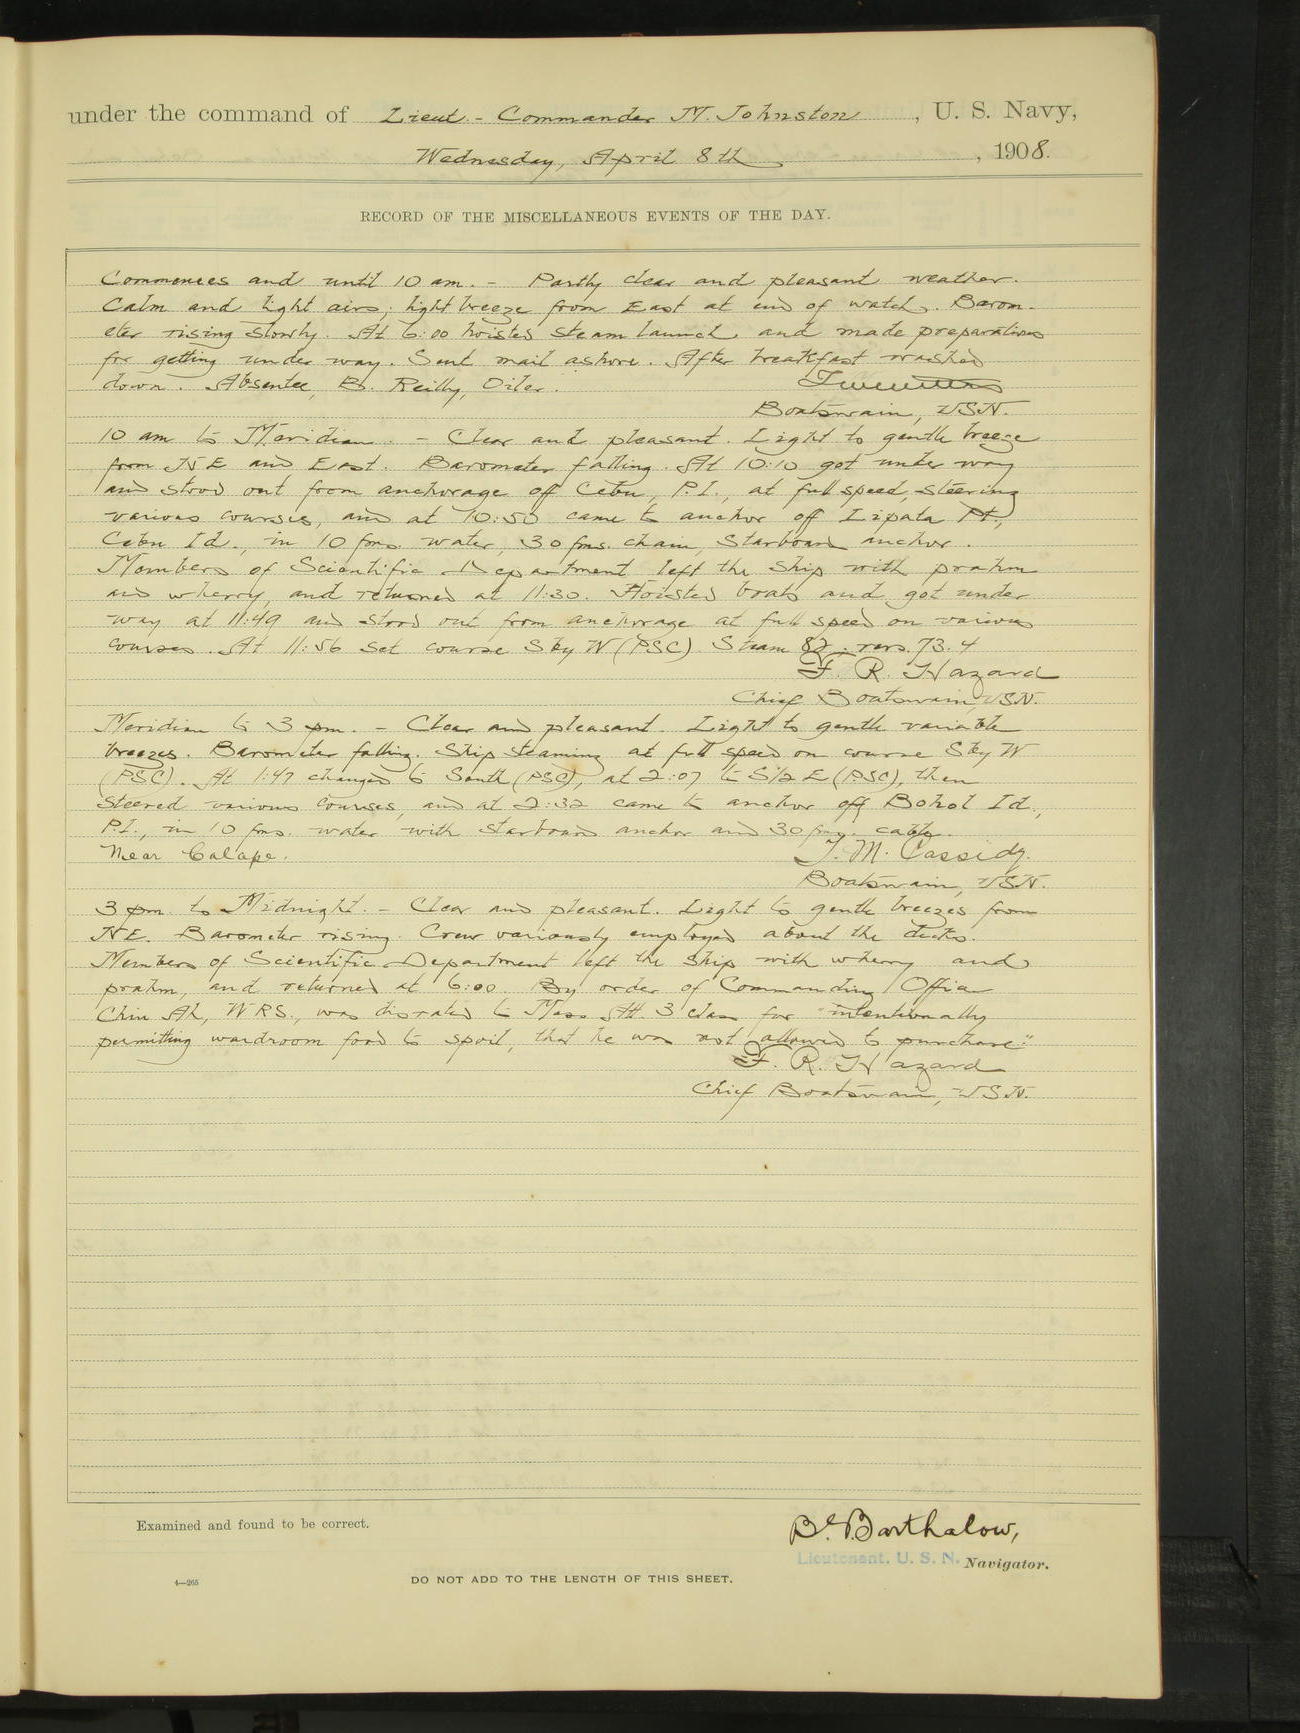 under the command of Lieut.- Commander M. Johnston, U. S. Navy,
Wednesday, April 8th, 1908.
RECORD OF THE MISCELLANEOUS EVENTS OF THE DAY.
Commences and until 10 am. - Partly clear and pleasant weather.
Calm and light airs; light breeze from East at end of watch. Barom-
eter rising slowly. At 6:00 hoisted steam launch and made preparations
for getting under way. Sent mail ashore. After breakfast washed
down. Absentee, B. Reilly, Oiler.
Boatswain, USN.
10 am to Meridian. - Clear and pleasant. Light to gentle breeze
from NE and East. Barometer falling. At 10:10 got under way
and stood out from anchorage off Cebu, P.I., at full speed, steering
various courses, and at 10:50 came to anchor off Lipata Pt.,
Cebu Id., in 10 fms. water, 30 fms. chain, starboard anchor.
Members of Scientific Department left the ship with prahm
and wherry, and returned at 11:30. Hoisted boats and got under
way at 11:49 and stood out from anchorage at full speed on various
courses. At 11:56 set course S by W (PSC). Steam 82; revs. 73.4
F. R. Hazard
Chief Boatswain, USN.
Meridian to 3 pm. - Clear and pleasant. Light to gentle variable
breezes. Barometer falling. Ship steaming at full speed on course S by W
(PSC). At 1:47 changed to South (PSC), at 2:07 to S1/2 E (PSC), then
steered various courses, and at 2:32 came to anchor off Bohol Id.,
P.I., in 10 fms. water with starboard anchor and 30 fms. cable.
Near Calape. T. M. Cassidy.
Boatswain, USN.
3 pm. to Midnight. - Clear and pleasant. Light to gentle breezes from
NE. Barometer rising. Crew variously employed about the decks.
Members of Scientific Department left the ship with wherry and
prahm, and returned at 6:00. By order of Commanding Officer
Chin Ah, WRS., was disrated to Mess Att. 3' class for "intentionally
permitting wardroom food to spoil, that he was not allowed to purchase."
F. R. Hazard
Chief Boatswain, USN.
Examined and found to be correct.
Barthalow,
Lieutenant. U. S. N. Navigator.
4—265
DO NOT ADD TO THE LENGTH OF THIS SHEET.